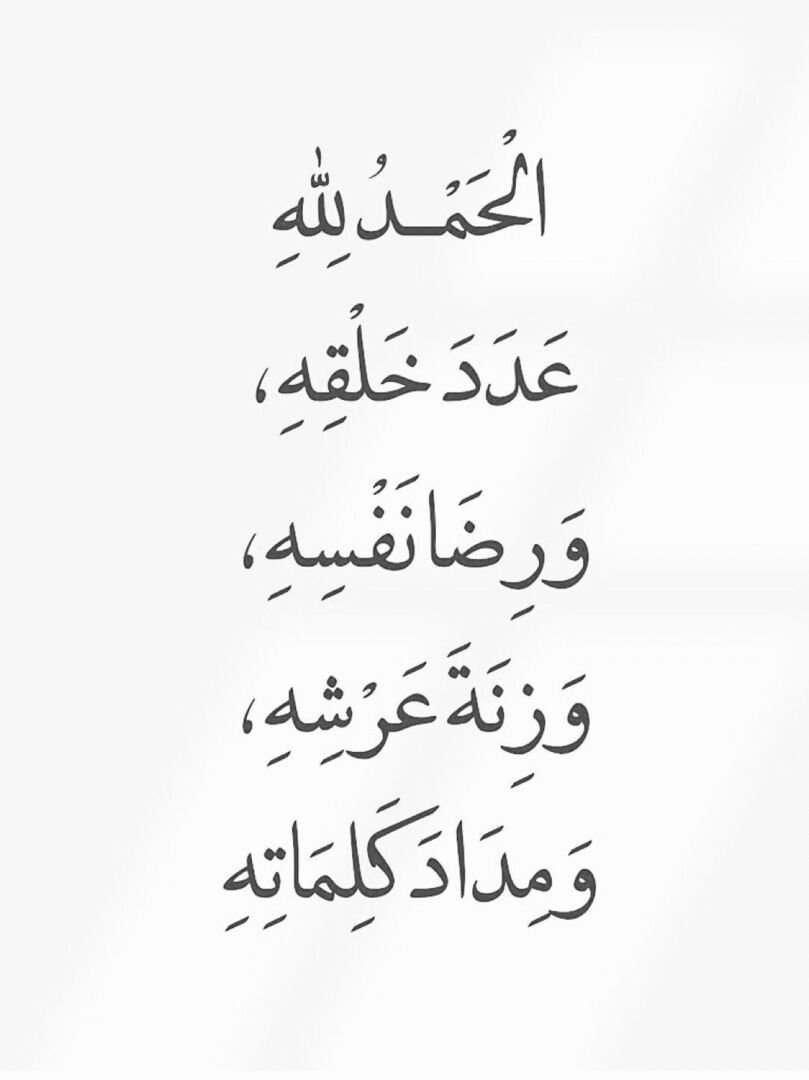 الْحَمْـدُ لِلّٰهِ
عَدَدَ خَلْقِهِ،
وَرِضَا نَفْسِهِ،
وَزِنَةَ عَرْشِهِ،
وَمِدَادَ كَلِمَاتِهِ